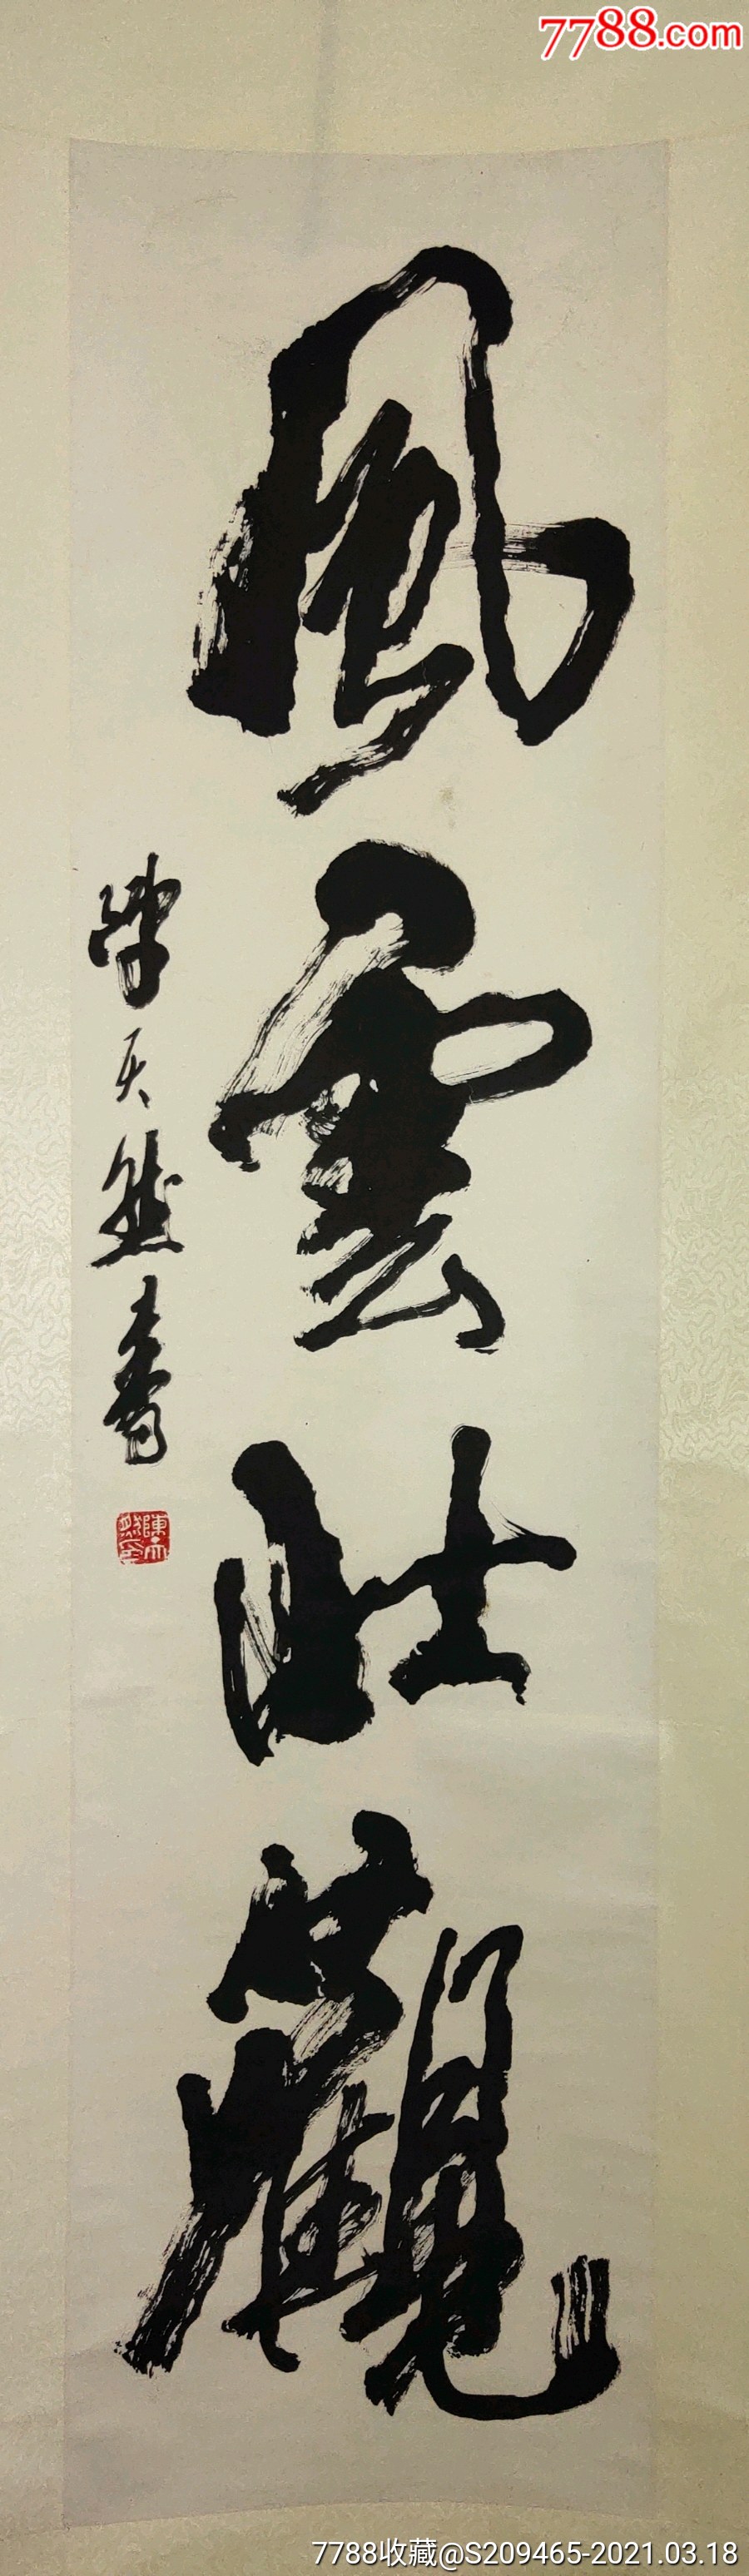 7788.com
風雲壯觀
陈天然书
陳天然印
7788收藏@S209465-2021.03.18